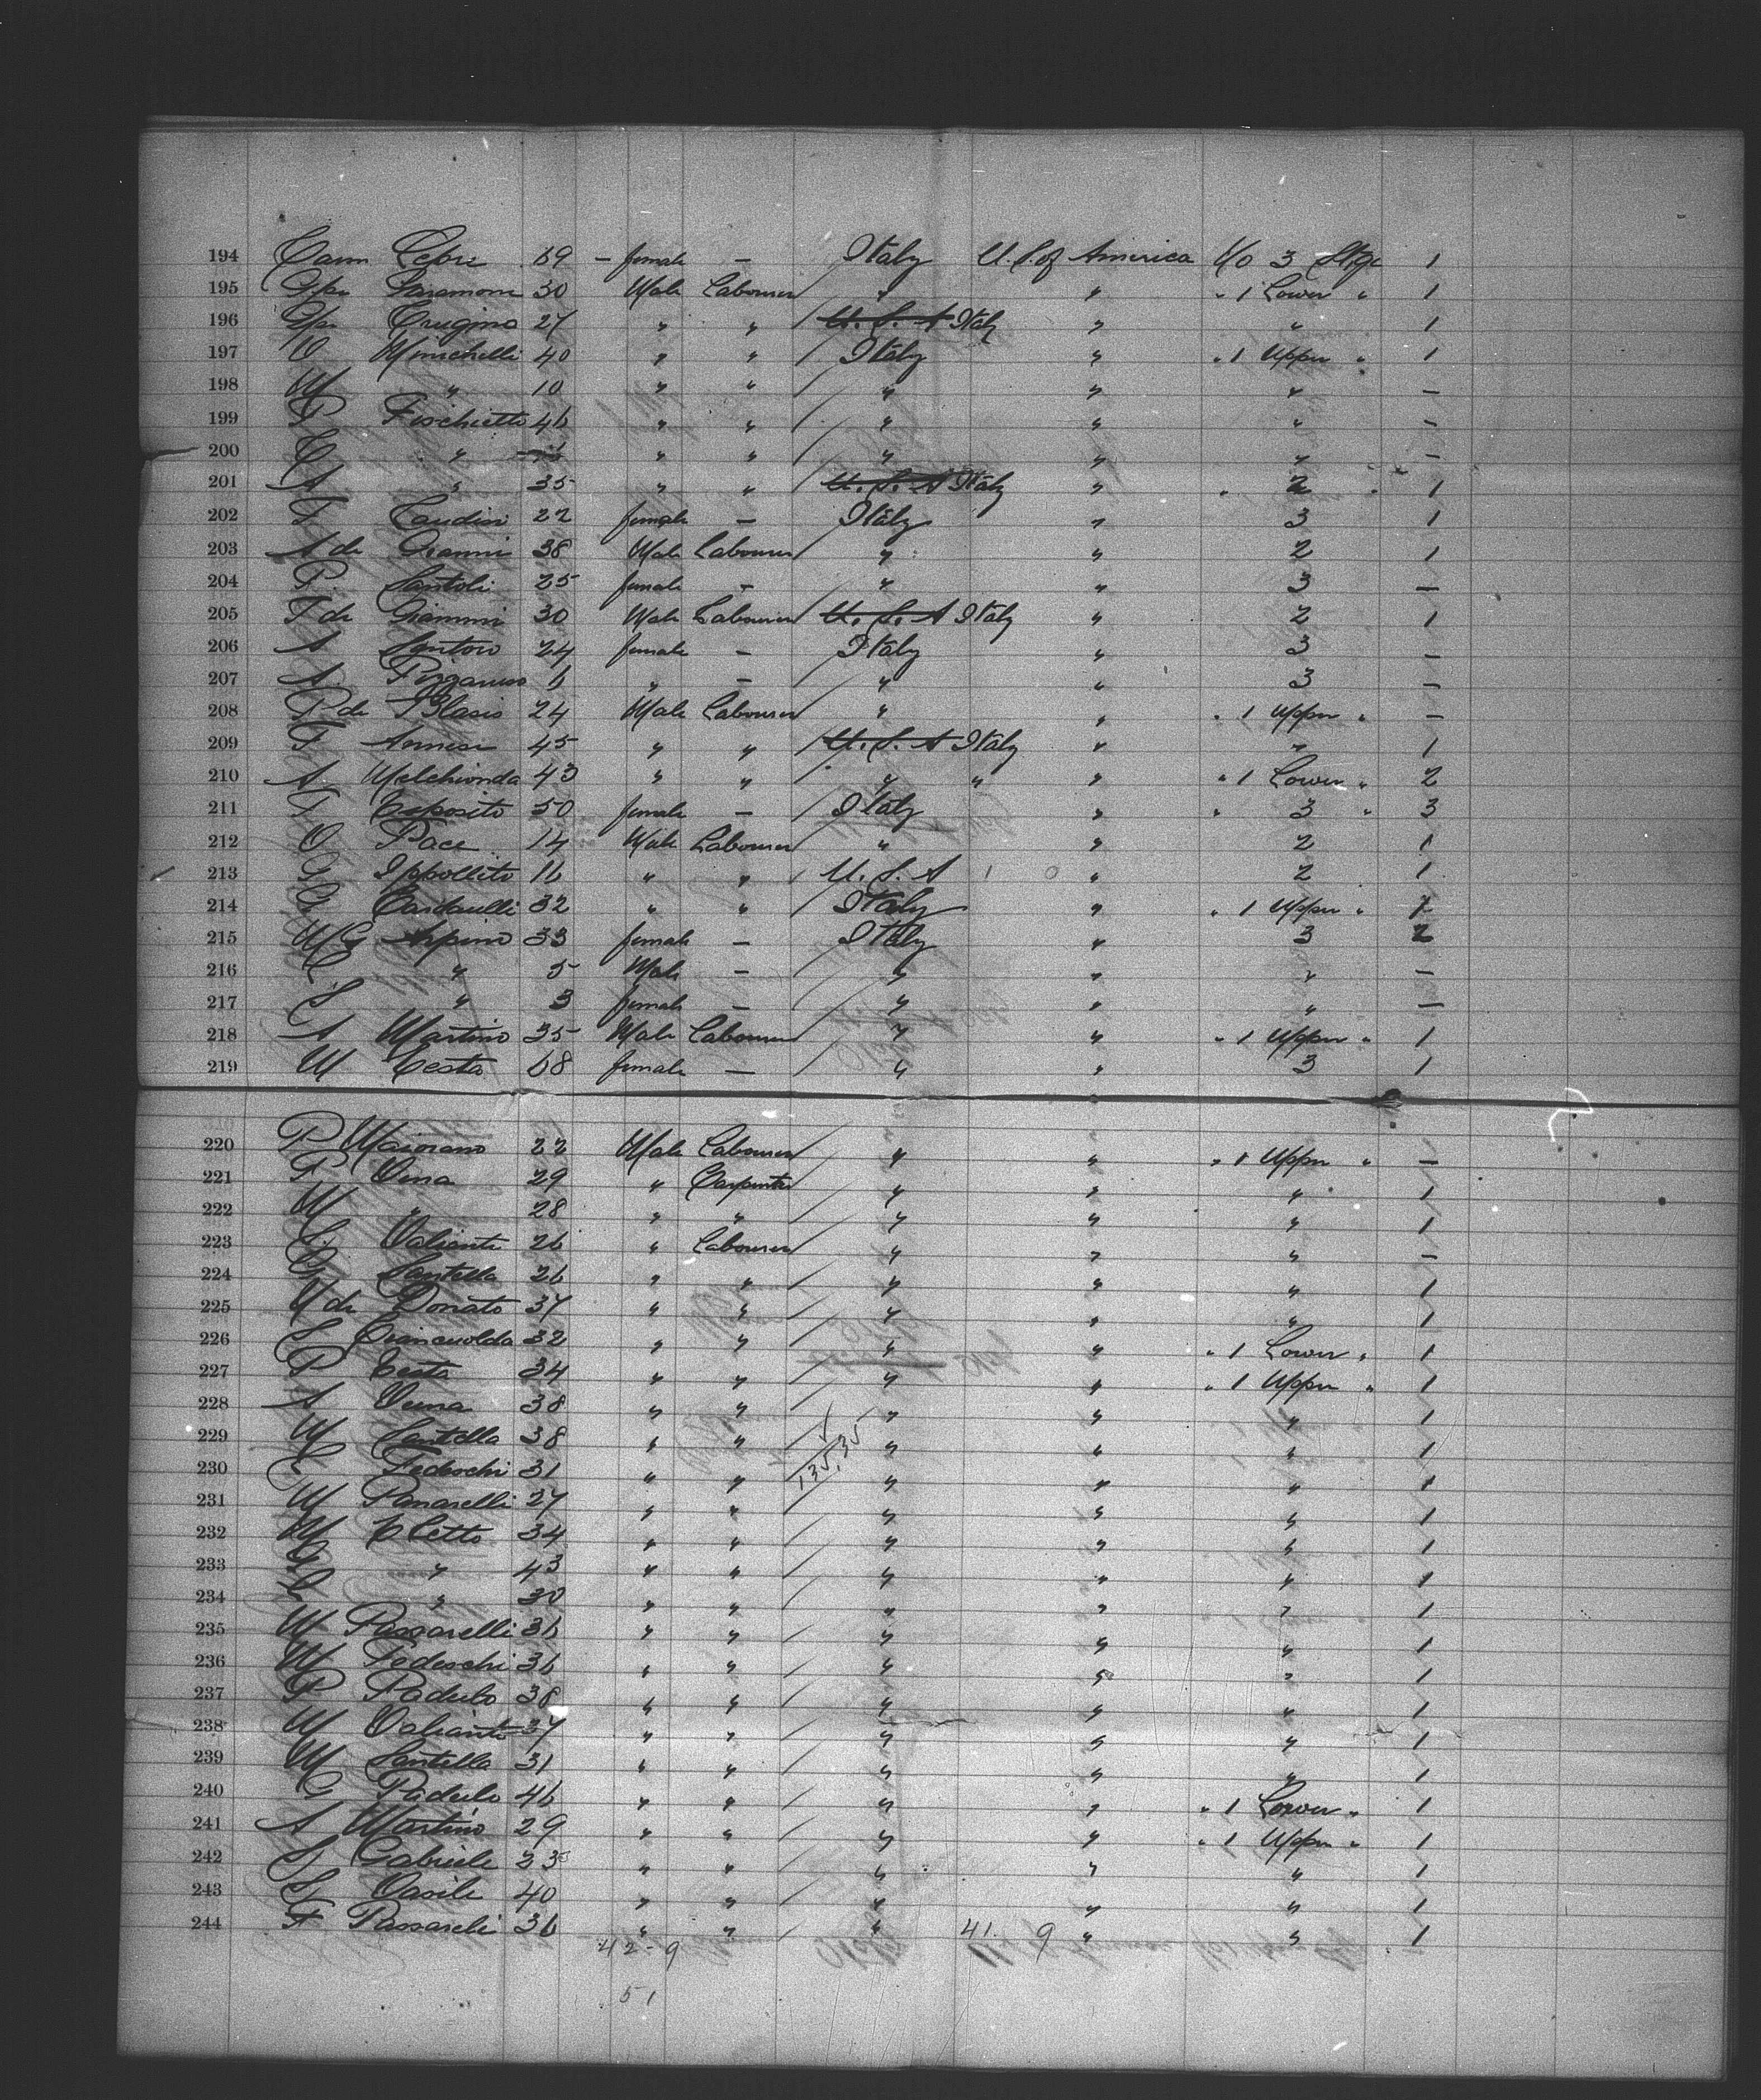 194 Carm Cebri 69 – female – Italy U. S. of America No 3 Stge 1
195 Gse Paramoni 30 Male Labourer " " " 1 Lower " 1
196 Gse Crugino 27 " " U. S. A Italy " " 1
197 O Minichelli 40 " " Italy " " 1 Upper " 1
198 M " 10 " " " " " –
199 P Fischietti 46 " " " " " –
200 C " " " " " " –
201 A " 35 " " U. S. A Italy " " 2 " 1
202 F Candini 22 female – Italy " 3 1
203 A de Gianni 38 Male Labourer " " 2 1
204 P. Santoli 25 female – " " 3 –
205 F de Giammi 30 Male Labourer U. S. A Italy " 2 1
206 A Santoro 24 female – Italy " 3 –
207 A. 6 " – " " 3 –
208 P de Blasis 24 Male Labourer " " " 1 Upper " –
209 F Annesi 45 " " U. S. A Italy " " 1
210 A Melchionda 43 " " " " " " 1 Lower " 2
211 F Esposito 50 female – Italy " " 3 " 3
212 O Pace 14 Male Labourer " " 2 1
213 G Ippollito 16 " " U. S. A " 2 1
214 G Cardarelli 32 " " Italy " " 1 Upper " 1
215 M G Arpino 33 female – Italy " 3 2
216 C " 5 Male – " " " –
217 S " 3 female – " " " –
218 A Martino 35 Male Labourer " " " 1 Upper " 1
219 M Testa 68 female – " " 3 1
220 P Maiorano 22 Male Labourer " " " 1 Upper " –
221 G Venna 29 " Carpenter " " " 1
222 M " 28 " " " " " 1
223 C. Valiante 26 " Labourer " " " –
224 G Santella 26 " " " " " 1
225 M de Donato 37 " " " " " 1
226 S 32 " " " " " 1 Lower " 1
227 P Testa 34 " " " " " 1 Upper " 1
228 A Venna 38 " " " " " 1
229 M Santella 38 " " " " " 1
230 C Tedeschi 31 " " 135,35 " " " 1
231 M Panarelli 27 " " " " " 1
232 M 34 " " " " " 1
233 G " 43 " " " " " 1
234 C " 30 " " " " " 1
235 M Passarelli 36 " " " " " 1
236 M Tedeschi 36 " " " " " 1
237 P Padulo 38 " " " " " 1
238 M Valiante 37 " " " " " 1
239 M Santella 31 " " " " " 1
240 G Padulo 46 " " " " " 1 Lower " 1
241 A Martino 29 " " " " " 1 Upper " 1
242 S Gabriele 23 " " " " " 1
243 G Vasile 40 " " " " " 1
244 F Passareli 36 " " " 41. 9 " " 1
42 - 9
51